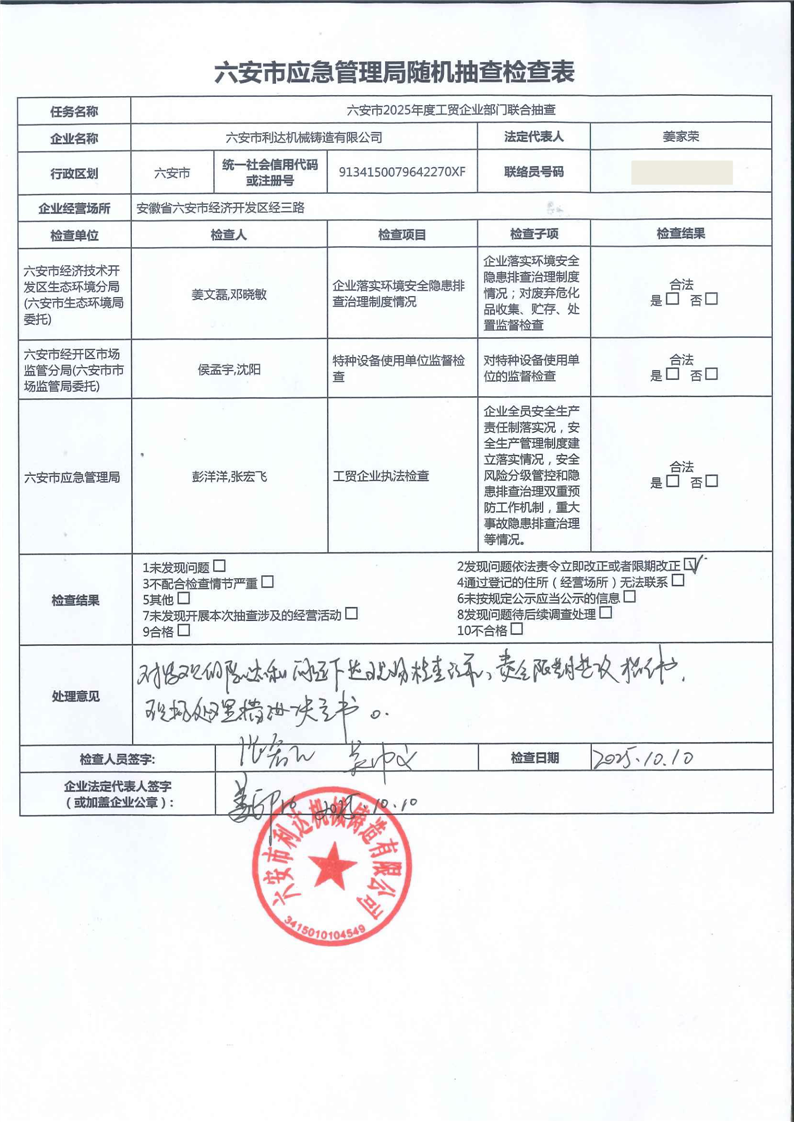 六安市应急管理局随机抽查检查表
任务名称 六安市2025年度工贸企业部门联合抽查
企业名称 六安市利达机械铸造有限公司 法定代表人 姜家荣
行政区划 六安市 统一社会信用代码 9134150079642270XF 联络员号码
或注册号
企业经营场所 安徽省六安市经济开发区经三路
检查单位 检查人 检查项目 检查子项 检查结果
六安市经济技术开
发区生态环境分局
(六安市生态环境局
委托)
姜文磊,邓晓敏
企业落实环境安全隐患排
查治理制度情况
企业落实环境安全
隐患排查治理制度
情况；对废弃危化
品收集、贮存、处
置监督检查
合法
是□ 否□
六安市经开区市场
监管分局(六安市市
场监管局委托)
侯孟宇,沈阳
特种设备使用单位监督检
查
对特种设备使用单
位的监督检查
合法
是□ 否□
六安市应急管理局
彭洋洋,张宏飞
工贸企业执法检查
企业全员安全生产
责任制落实况，安
全生产管理制度建
立落实情况，安全
风险分级管控和隐
患排查治理双重预
防工作机制，重大
事故隐患排查治理
等情况。
合法
是□ 否□
检查结果
1未发现问题□ 2发现问题依法责令立即改正或者限期改正☑
3不配合检查情节严重□ 4通过登记的住所（经营场所）无法联系□
5其他□ 6未按规定公示应当公示的信息□
7未发现开展本次抽查涉及的经营活动□ 8发现问题待后续调查处理□
9合格□ 10不合格□
处理意见
对发现的隐患和问题下达现场检查记录、责令限期整改指令书、
现场处理措施决定书。
检查人员签字： 检查日期 2025.10.10
企业法定代表人签字
（或加盖企业公章）： 2025.10.10
六安市利达机械铸造有限公司
3415010104549